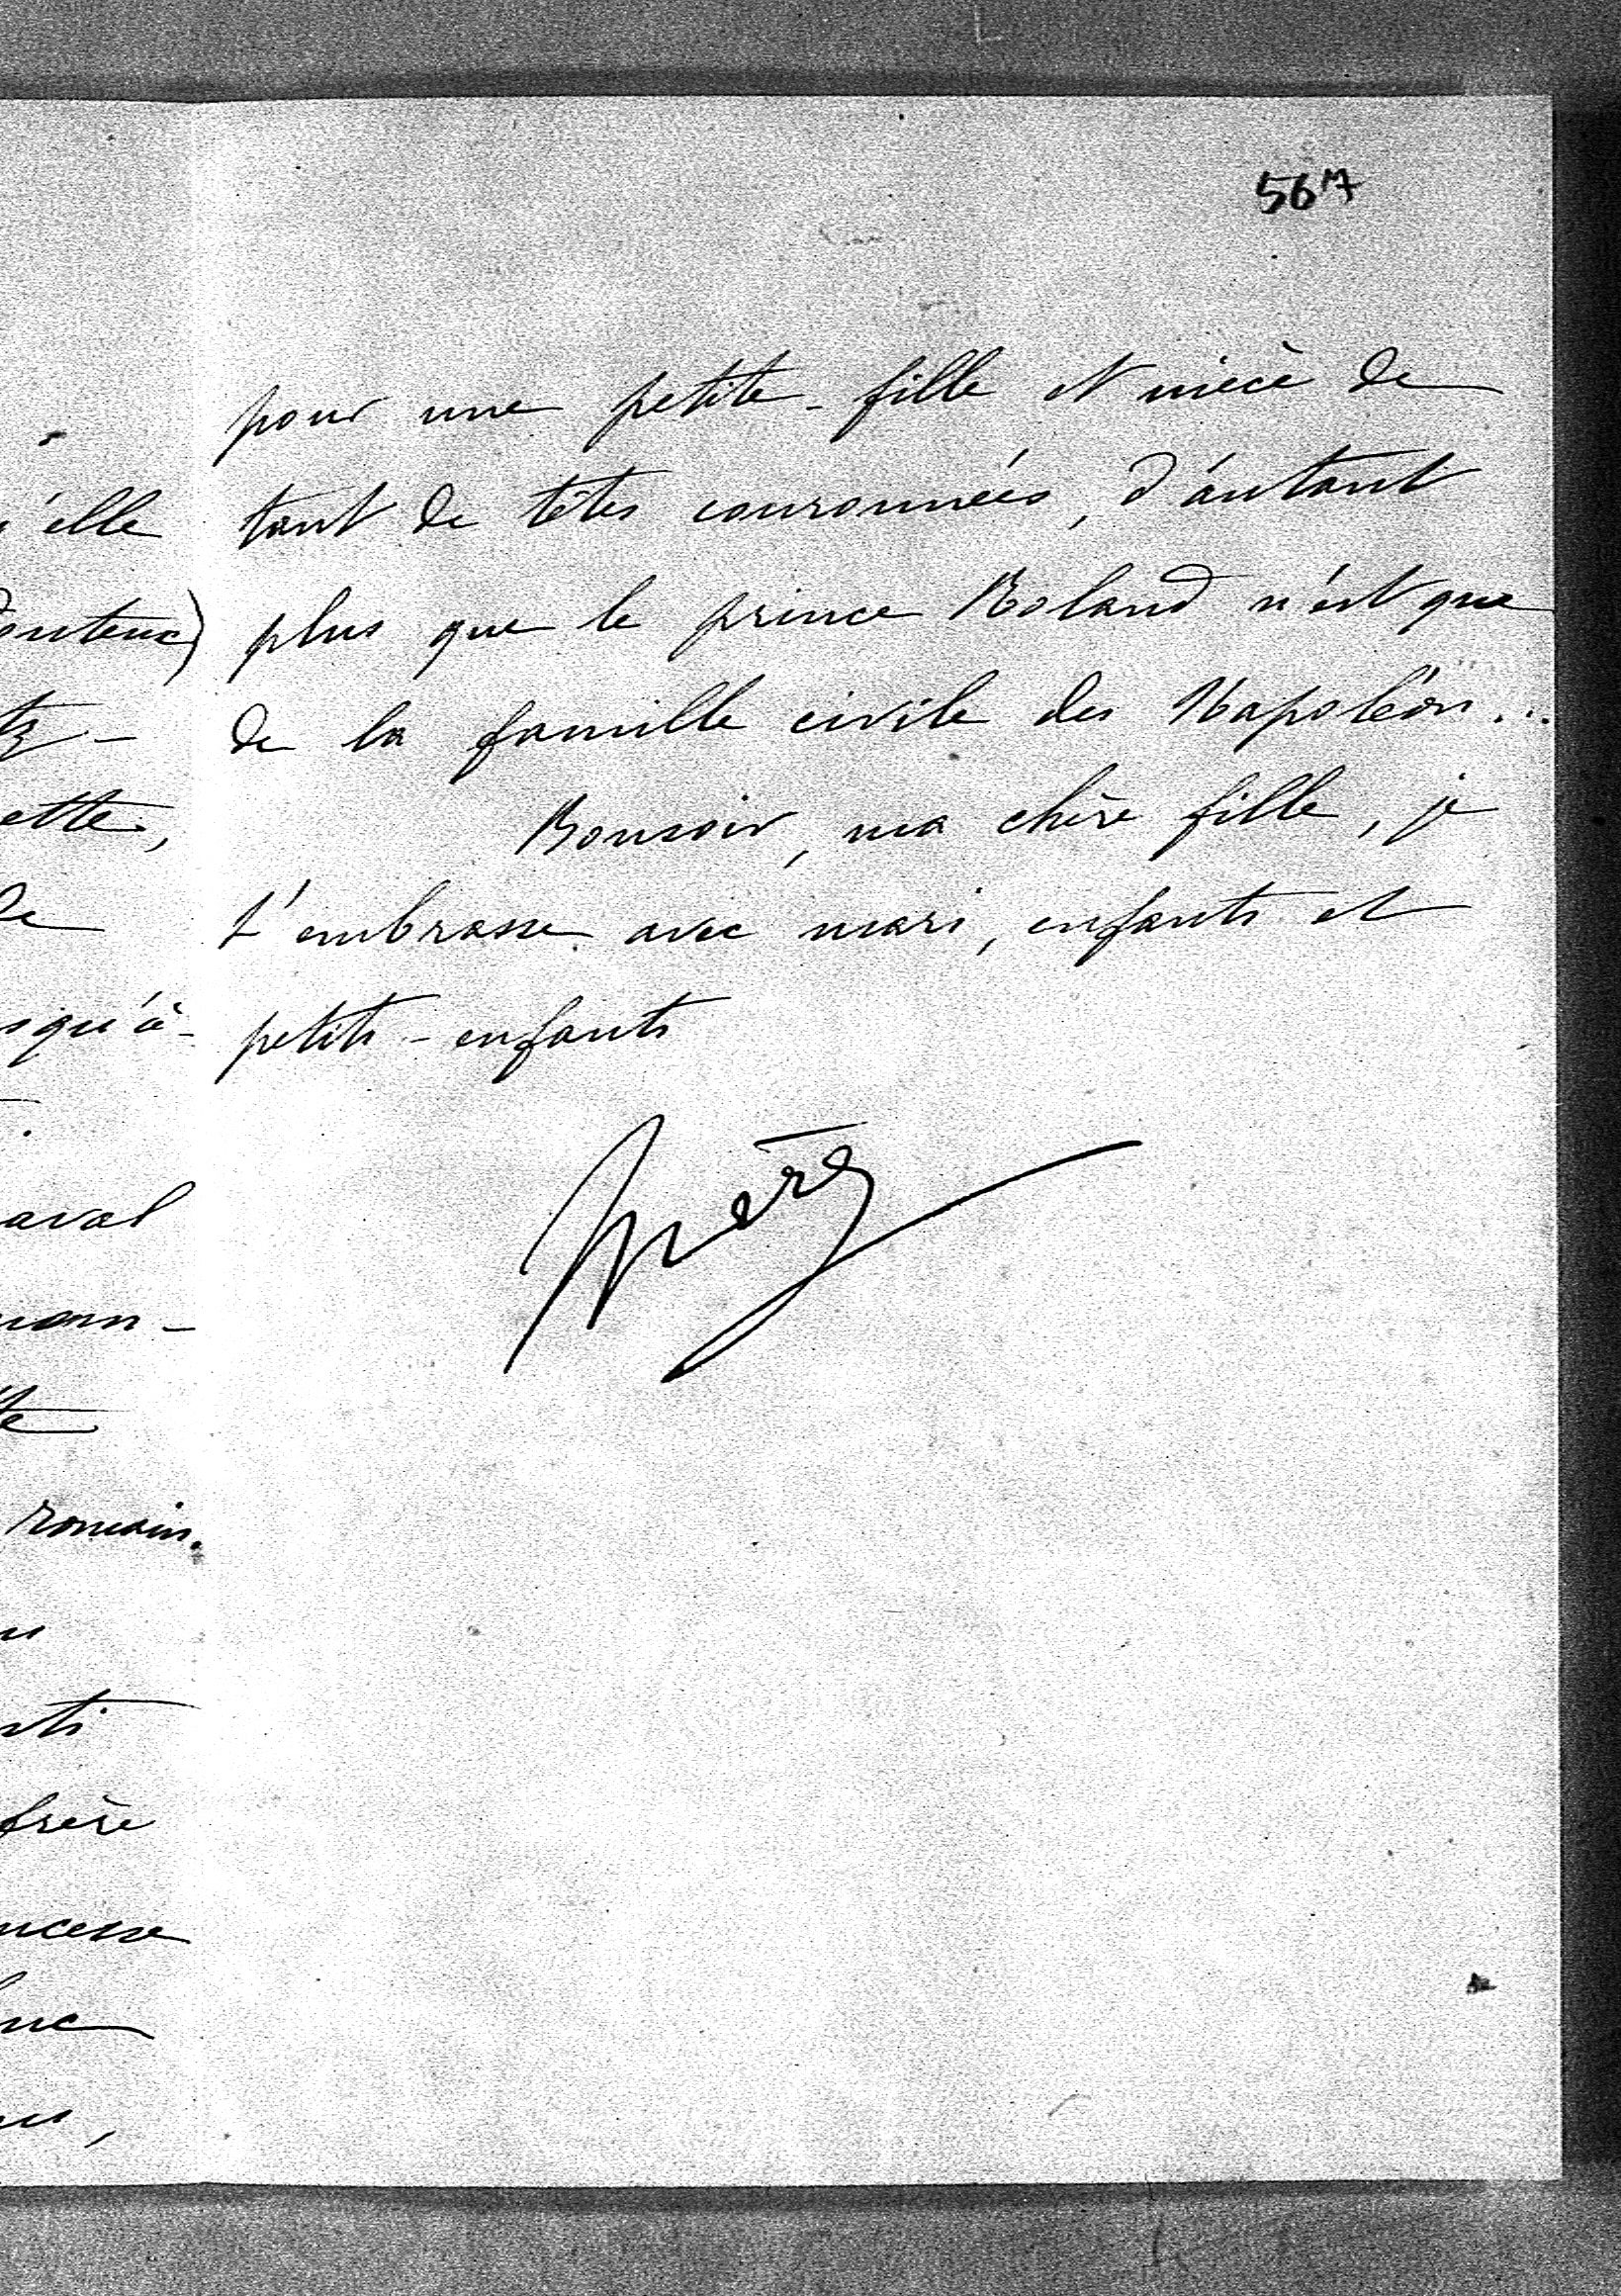 567
pour une petite-fille et nièce de
tant de têtes couronnées, d'autant
plus que le prince Roland n'est que
de la famille civile des Napoléon...
Bonsoir, ma chère fille, je
t'embrasse avec mari, enfants et
petits-enfants
Mère
'elle
ette,
de
squ'à-
aval
romain.
frère